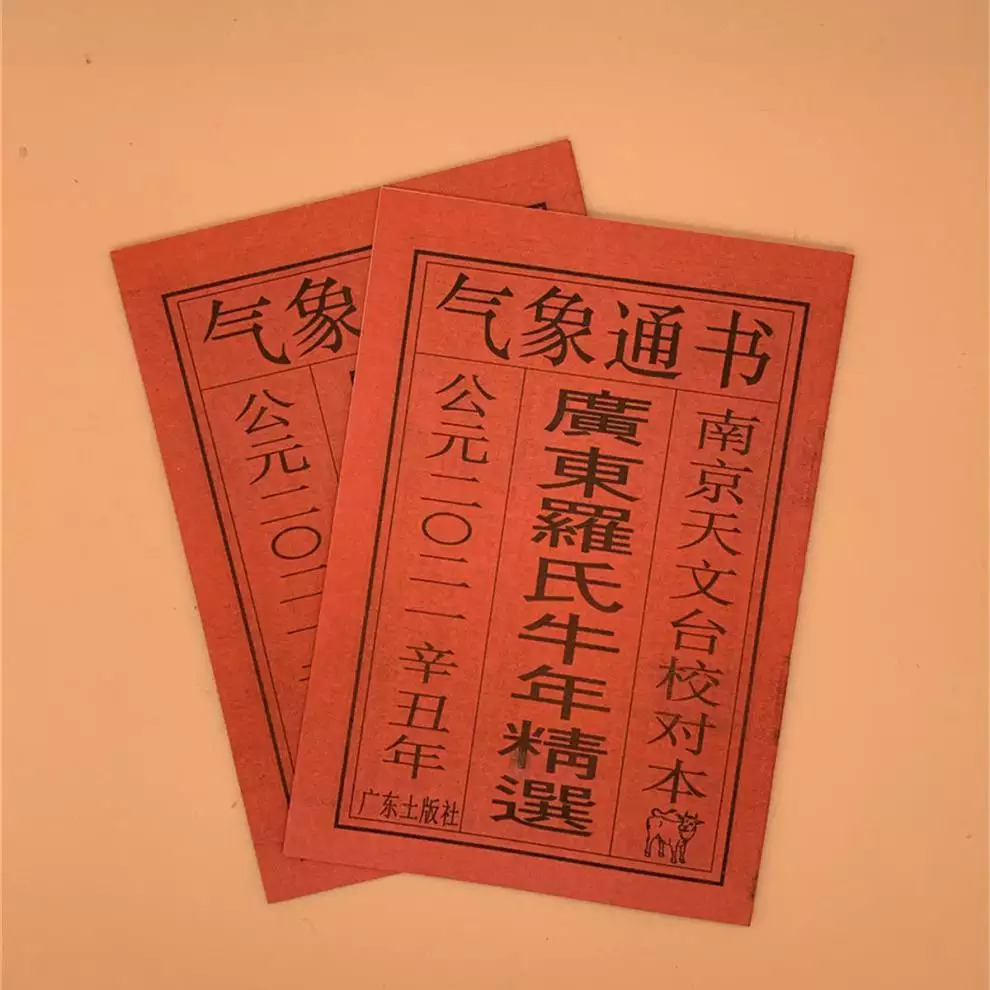 气象通书
南京天文台校对本
廣東羅氏牛年精選
公元二〇二一辛丑年
广东土版社
气象
公元二〇二